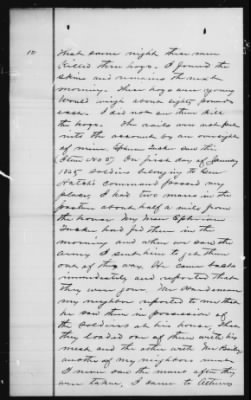 12
That same night these men
killed three hogs. I found the
skins and remains the next
morning. These hogs were young
Would weigh about eighty pounds
each. I did not see them kill
the hogs. The nails were not put
into the account by an oversight
of mine. Ephriam Tusker saw this
(Item No 5) On first day of January
1865 soldiers belonging to Gen
Hatch's command passed my
place, I had two mares in the
pasture about half a mile from
the house My man Ephriam
Tusker had fed them in the
morning and when we saw the
army I sent him to get them
out of the way. He came back
immediately and reported that
they were gone. Mr
my neighbor reported to me that
he saw them in possession of
the soldiers at his house, that
they loaded one of them with his
meat and the other with Mr
another of my neighbors meat
I never saw the mares after they
were taken. I came to Athens